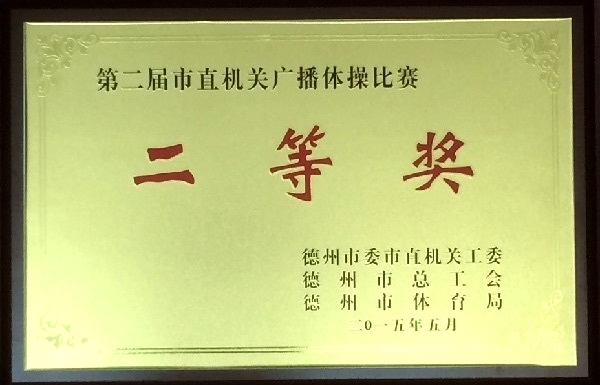 第二届市直机关广播体操比赛
二等奖
德州市委市直机关工委
德州市总工会
德州市体育局
二0一五年五月